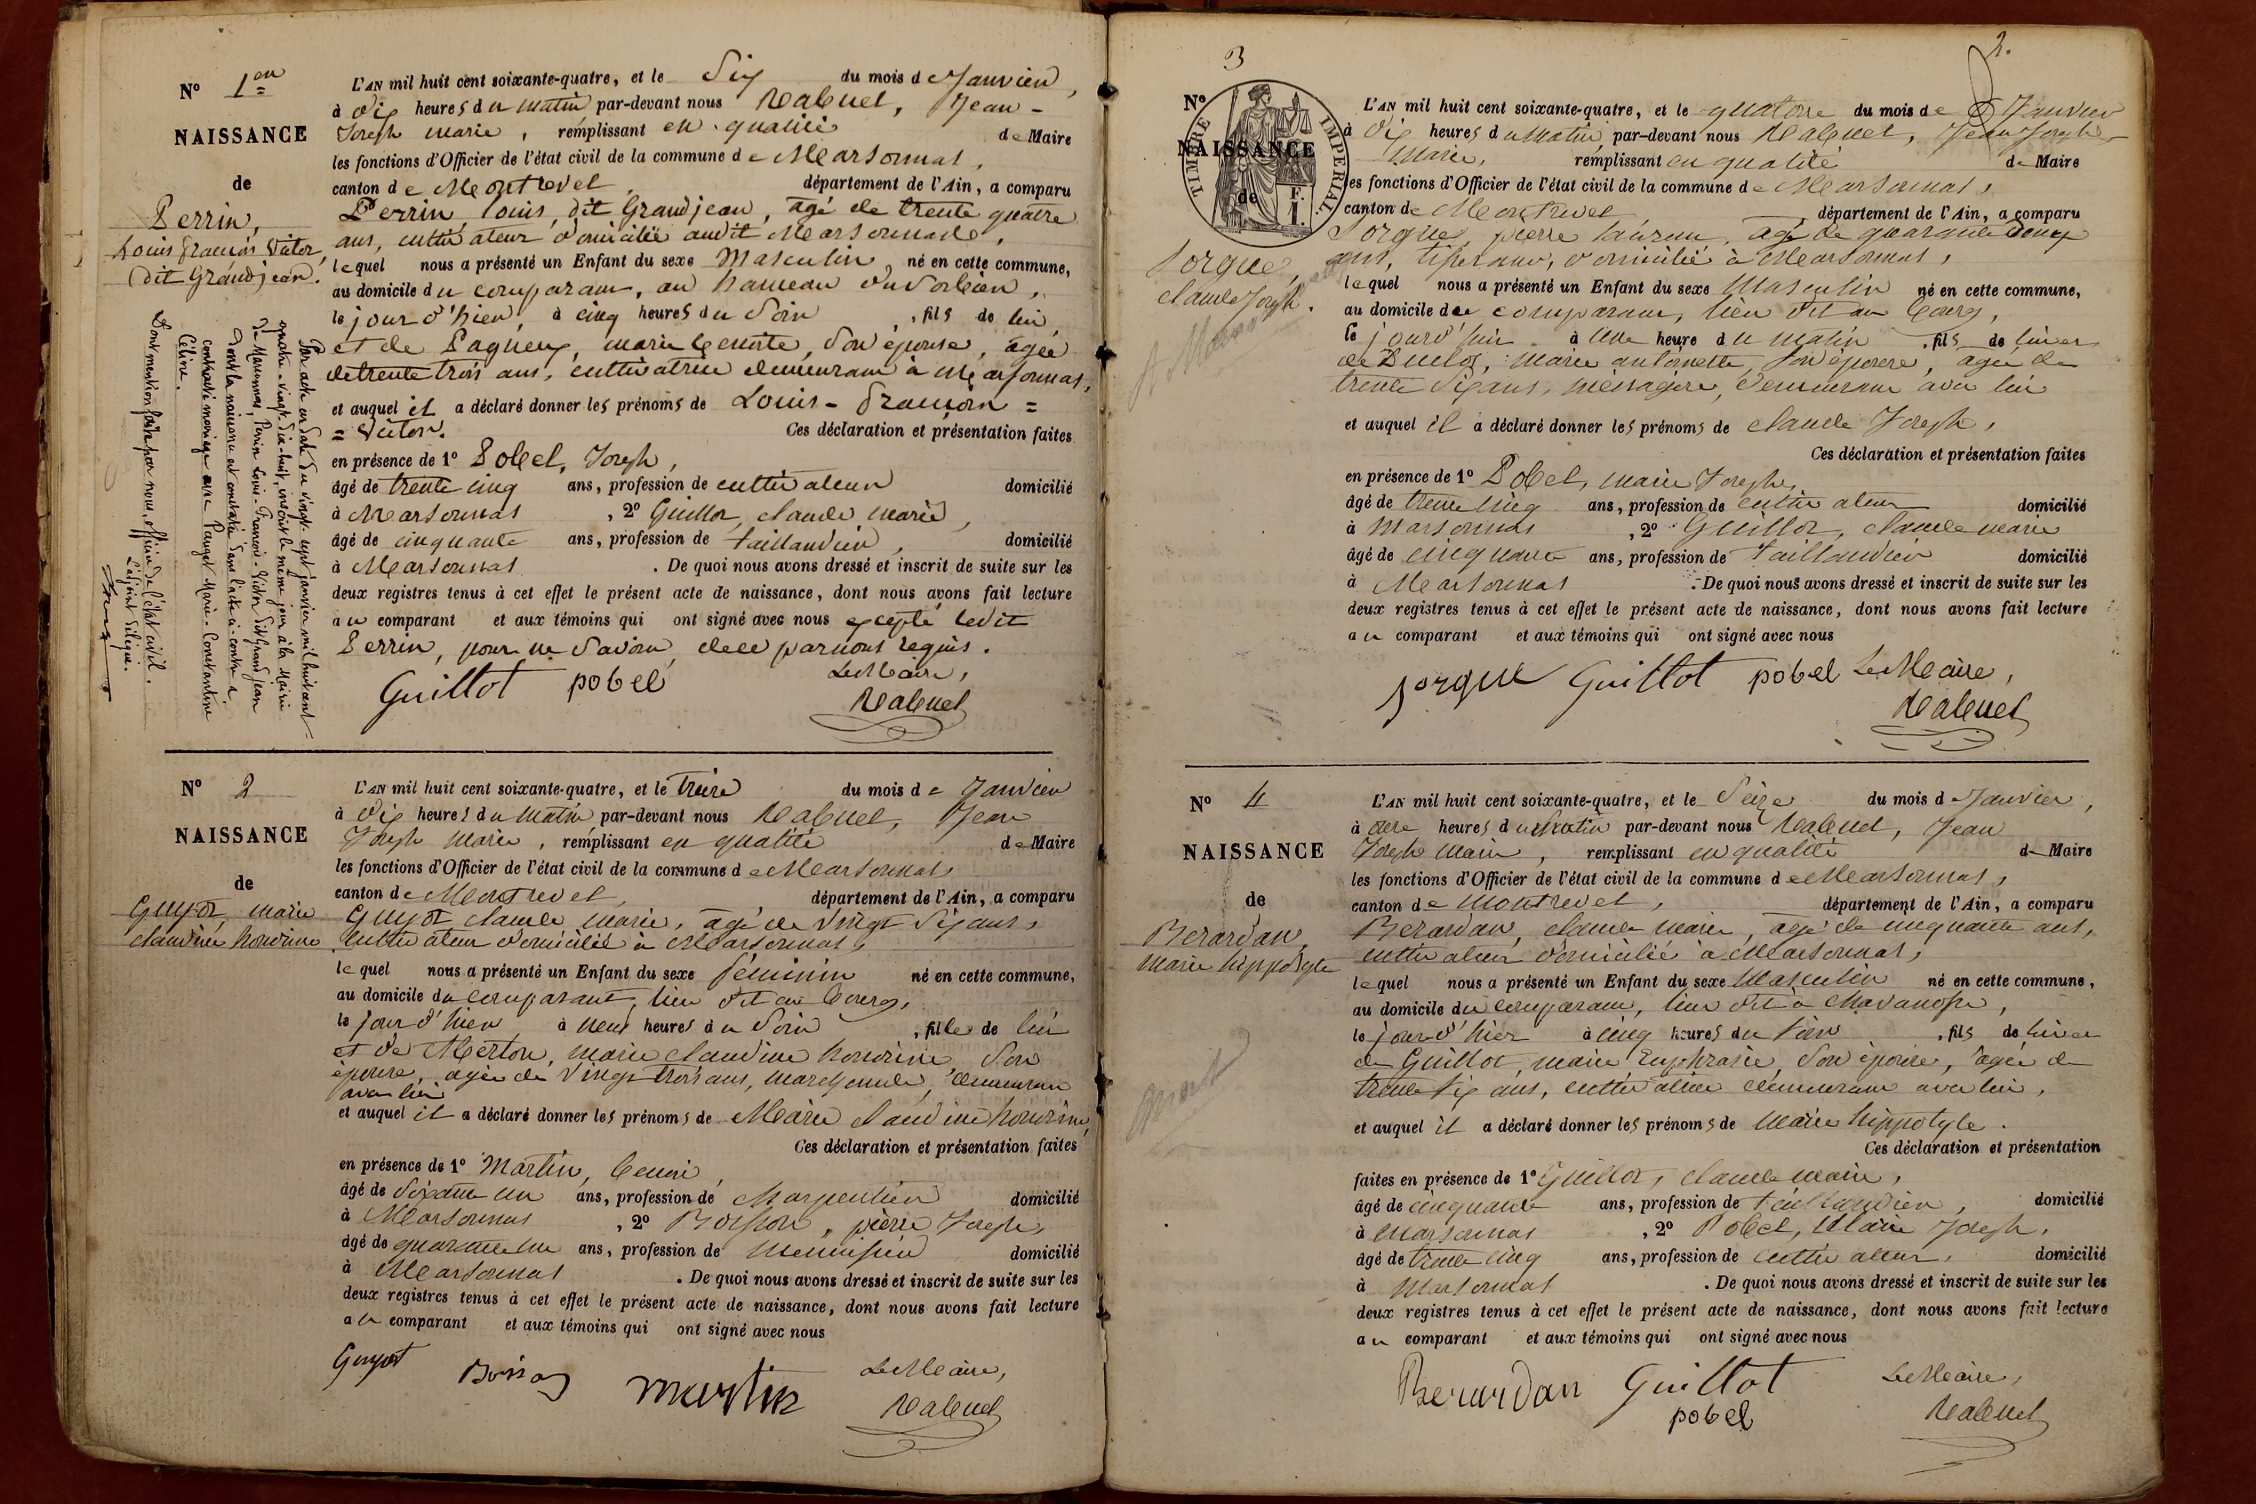 Nº 1er
NAISSANCE
de
Perrin,
Louis François Victor,
(dit Grandjean.
L'AN mil huit cent soixante-quatre, et le Six du mois de Janvier,
à dix heures du matin par-devant nous Rabuel, Jean-
Joseph marie, remplissant en qualité de Maire
les fonctions d'Officier de l'état civil de la commune de Marsonnas,
canton de Montrevel, département de l'Ain, a comparu
Perrin, Louis, dit Grandjean, agé de trente quatre
ans, cultivateur domicilié audit Marsonnas,
lequel nous a présenté un Enfant du sexe Masculin né en cette commune,
au domicile du comparant, au hameau du
le jour d'hier, à cinq heures du Soir, fils de lui
et de Pagneux, marie benoite, Son épouse, agée
de trente trois ans, cultivatrice demeurant à Marsonnas,
et auquel il a déclaré donner les prénoms de Louis-François=
=Victor. Ces déclaration et présentation faites
en présence de 1º Pobel, Joseph,
âgé de trente cinq ans, profession de cultivateur domicilié
à Marsonnas, 2º Guillot, claude marie,
âgé de cinquante ans, profession de taillandier, domicilié
à Marsonnas. De quoi nous avons dressé et inscrit de suite sur les
deux registres tenus à cet effet le présent acte de naissance, dont nous avons fait lecture
au comparant et aux témoins qui ont signé avec nous excepté ledit
Perrin, pour ne Savoir, de ce par nous requis.
Guillot pobel Le Maire,
Rabuel
Par acte en date du vingt-sept janvier mil huit cent
quatre-vingt-dix-huit, inscrit le même jour à la Mairie
de Marsonnas, Perrin Louis-François-Victor dit Grandjean
dont la naissance est constatée dans l'acte ci-contre a
contracté mariage avec Pauget Marie-Constantine
Céline.
Dont mention faite par nous, officier de l'état civil.
L'adjoint délégué.
Nº 2
NAISSANCE
de
Guyot, marie
claudine honorine
L'AN mil huit cent soixante-quatre, et le treize du mois de Janvier
à dix heures du matin par-devant nous Rabuel, Jean
Joseph Marie, remplissant en qualité de Maire
les fonctions d'Officier de l'état civil de la commune de Marsonnas
canton de Montrevel, département de l'Ain, a comparu
Guyot claude marie, agé de vingt Six ans,
cultivateur domicilié à Marsonnas,
lequel nous a présenté un Enfant du sexe féminin né en cette commune,
au domicile du comparant, lieu dit au bourg,
le jour d'hier à neuf heures du Soir, fille de lui
et de Merton, marie claudine honorine Son
épouse, agée de vingt trois ans, demeurant
avec lui
et auquel il a déclaré donner les prénoms de Marie claudine honorine,
Ces déclaration et présentation faites
en présence de 1º Martin, benoi,
âgé de Soixante un ans, profession de charpentier domicilié
à Marsonnas, 2º Boisson, pierre Joseph,
âgé de quarante un ans, profession de menuisier domicilié
à Marsonnas. De quoi nous avons dressé et inscrit de suite sur les
deux registres tenus à cet effet le présent acte de naissance, dont nous avons fait lecture
au comparant et aux témoins qui ont signé avec nous
Guyot Boisson martin Le Maire,
Rabuel
3
2.
Nº
NAISSANCE
de
TIMBRE IMPERIAL
F.
1.
Jorgue,
claude Joseph.
L'AN mil huit cent soixante-quatre, et le quatorze du mois de Janvier
à dix heures du matin, par-devant nous Rabuel, Jean Joseph
Marie, remplissant en qualité de Maire
les fonctions d'Officier de l'état civil de la commune de Marsonnas,
canton de Montrevel, département de l'Ain, a comparu
Jorgue, pierre agé de quarante
ans, tisserand, domicilié à Marsonnas,
lequel nous a présenté un Enfant du sexe Masculin né en cette commune,
au domicile du comparant, lieu dit au bourg,
le jourd'hui à une heure du matin, fils de lui et
de Duclos, marie antoinette, son épouse, agée de
trente Six ans, ménagère, demeurant avec lui
et auquel il a déclaré donner les prénoms de claude Joseph,
Ces déclaration et présentation faites
en présence de 1º Pobel, marie Joseph,
âgé de trente cinq ans, profession de cultivateur domicilié
à Marsonnas, 2º Guillot, claude marie
âgé de cinquante ans, profession de Taillandier domicilié
à Marsonnas. De quoi nous avons dressé et inscrit de suite sur les
deux registres tenus à cet effet le présent acte de naissance, dont nous avons fait lecture
au comparant et aux témoins qui ont signé avec nous
jorgue Guillot pobel Le Maire,
Rabuel
Nº 4
NAISSANCE
de
Berardan,
marie hippolyte
L'AN mil huit cent soixante-quatre, et le Seize du mois de Janvier,
à onze heures du matin par-devant nous Rabuel, Jean
Joseph marie, remplissant en qualité de Maire
les fonctions d'Officier de l'état civil de la commune de Marsonnas,
canton de Montrevel, département de l'Ain, a comparu
Berardan, claude marie, agé de cinquante ans,
cultivateur domicilié à Marsonnas,
lequel nous a présenté un Enfant du sexe Masculin né en cette commune,
au domicile du comparant, lieu dit à Chavanosse,
le jour d'hier à cinq heures du soir, fils de lui et
de Guillot, marie Euphrasie, Son épouse, agée de
trente Six ans, cultivatrice demeurant avec lui,
et auquel il a déclaré donner les prénoms de Marie hippolyte.
Ces déclaration et présentation
faites en présence de 1º Guillot, claude marie,
âgé de cinquante ans, profession de taillandier, domicilié
à Marsonnas, 2º Pobel, Marie Joseph,
âgé de trente cinq ans, profession de cultivateur, domicilié
à Marsonnas. De quoi nous avons dressé et inscrit de suite sur les
deux registres tenus à cet effet le présent acte de naissance, dont nous avons fait lecture
au comparant et aux témoins qui ont signé avec nous
Berardan Guillot Le Maire,
pobel Rabuel